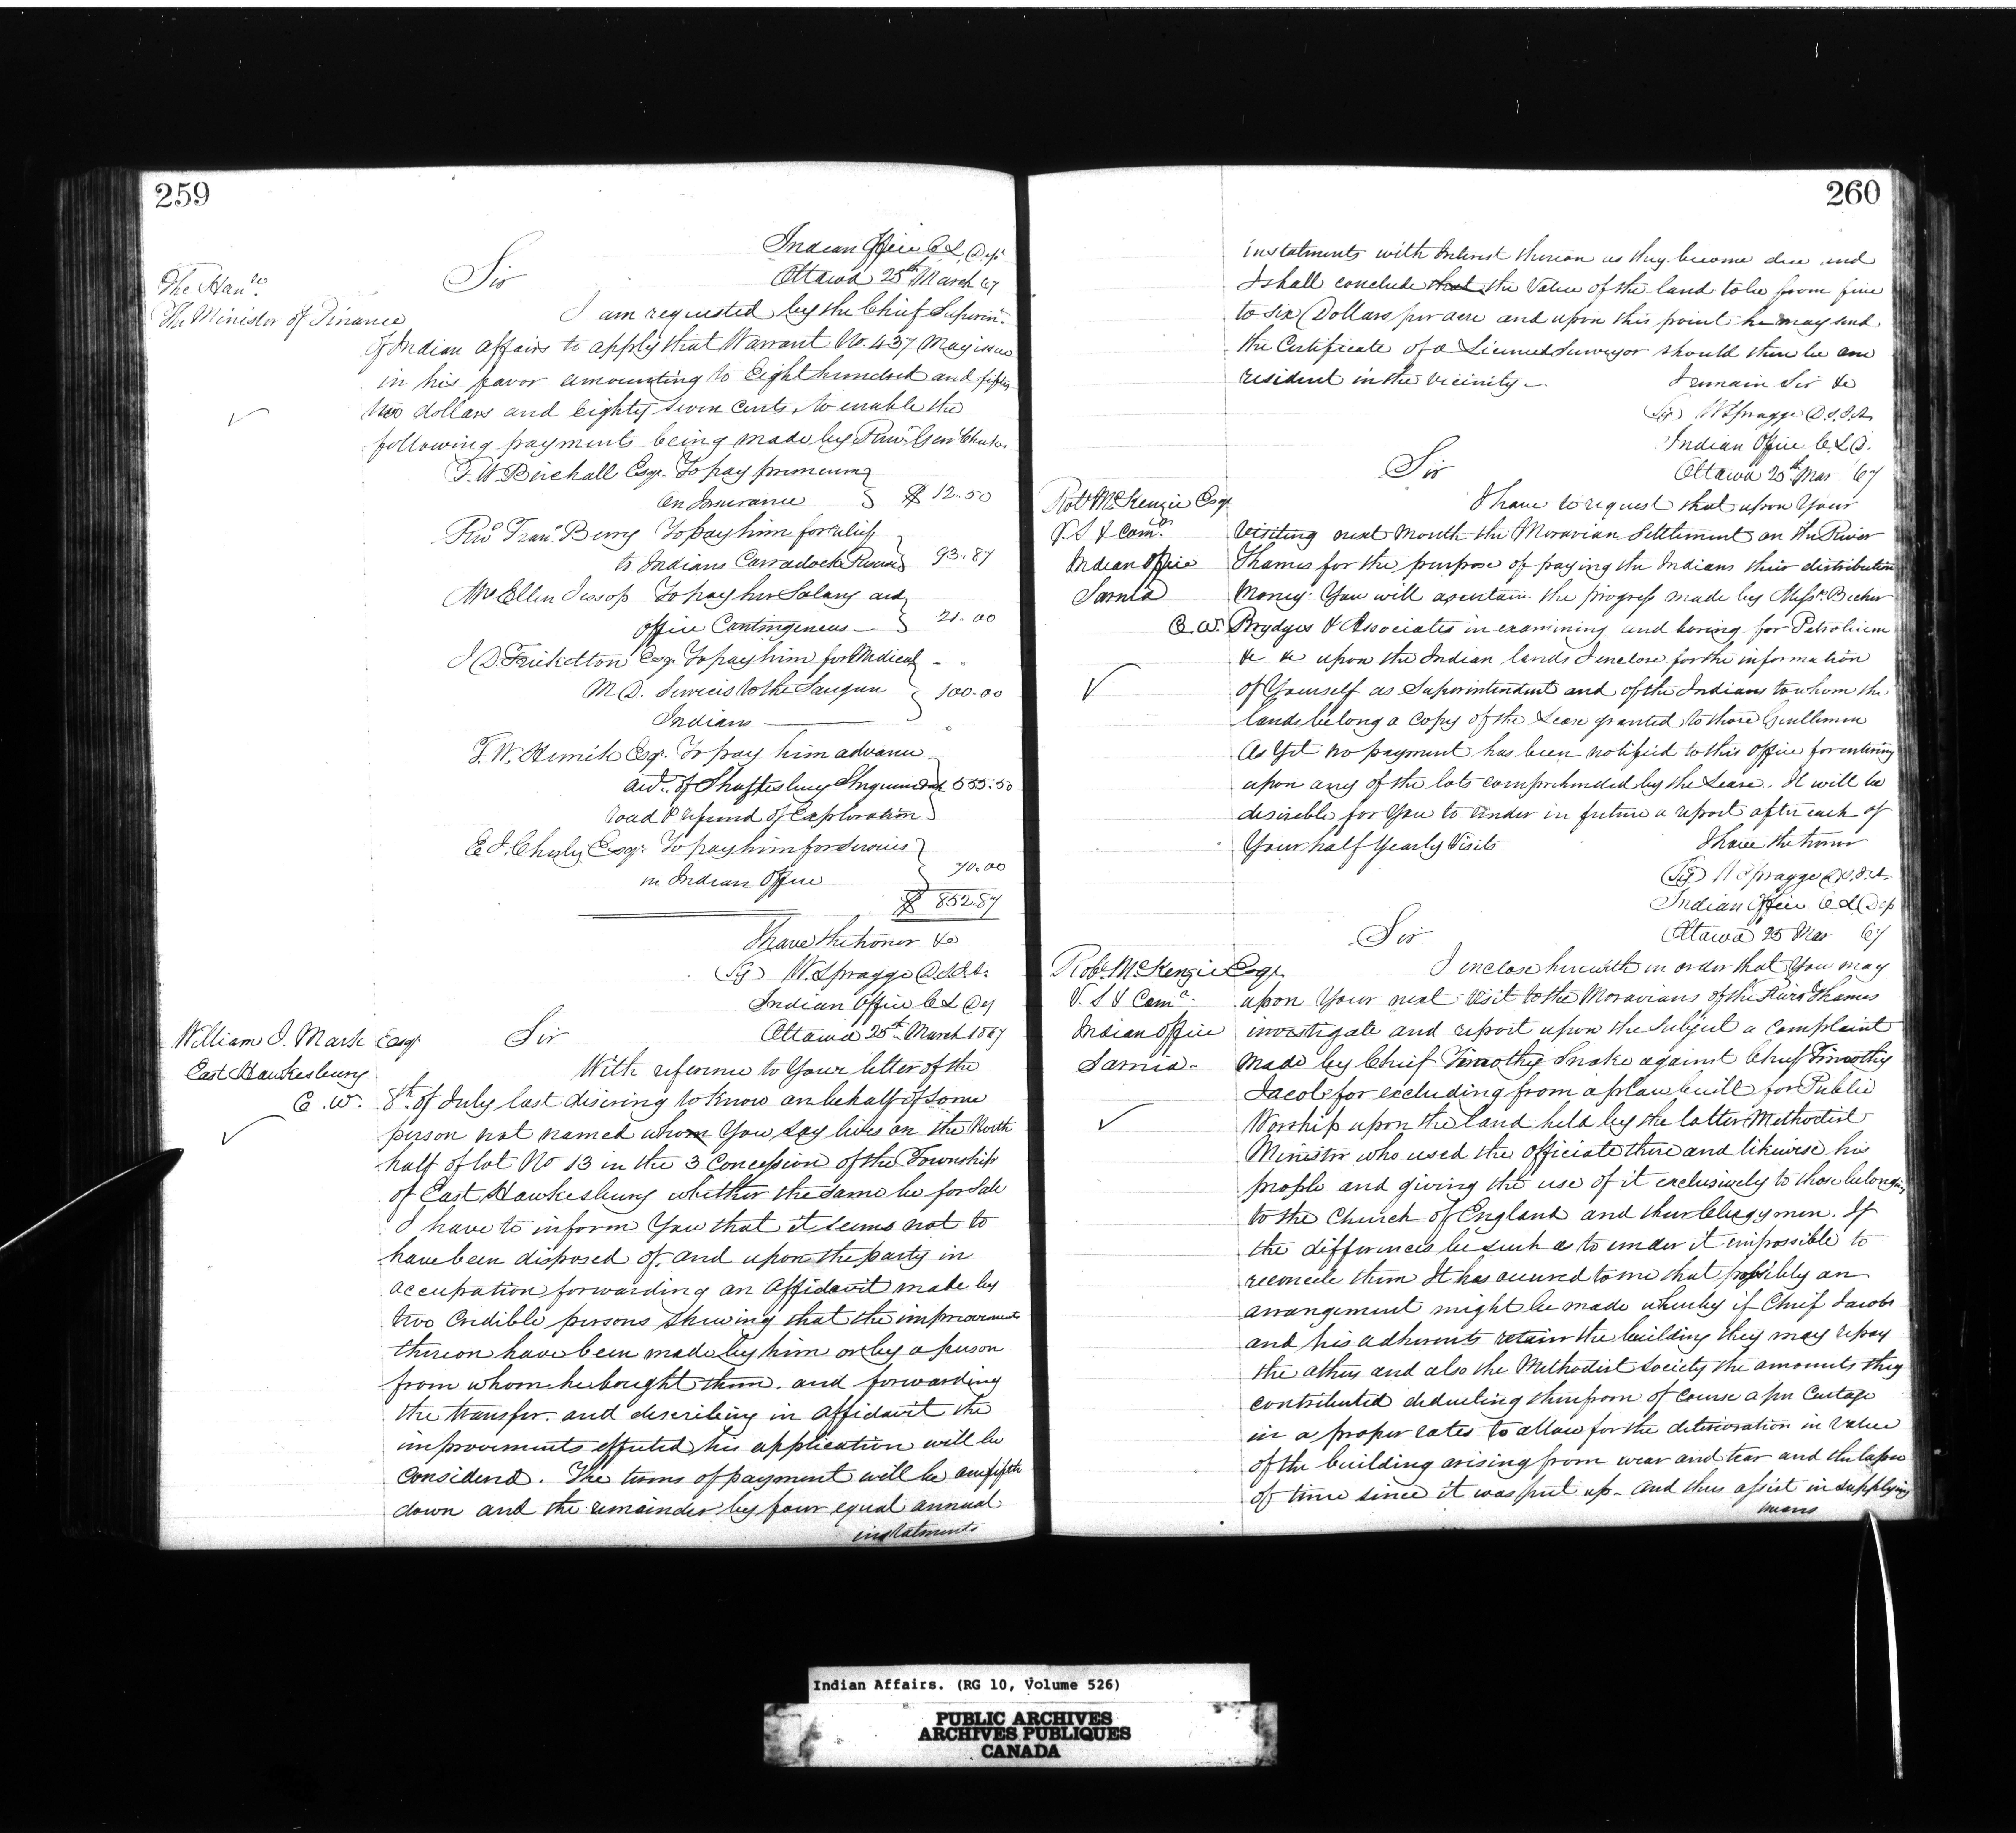 259
Indian Office C L Dept
Sir
Ottawa 25th March 67
The Honble
The Minister of Finance
I am requested by the Chief Superin:
of Indian Affairs to apply that Warrant No. 437 May issue
in his favor amounting to Eight hundred and fifty
two dollars and eighty seven cents, to enable the
following payments being made by Recr Genl Checks
T. W. Birchall Esqr. To pay premium
on Insurance $ 12.50
Revd Fran Berry To pay him for relief
to Indians Carradock Reserve 93.87
Mrs Ellen Jessop To pay her Salary and
Office Contingencies 21.00
M D. Services to the Saugeen 100.00
Indians
T. W. Herrick Esqr. To pay him advance
acct. of Shaftesbury 555.50
road & refund of Exploration
E. J. Chesley Esqr. To pay him for services
in Indian Office 70.00
$ 852.87
I have the honor &c
(Sg) W. Spragge D.S.I.A.
Indian Office C L Dep
Sir
Ottawa 25th March 1867
William J. Mark Esqr
East Hawkesbury
C. W.
With reference to Your letter of the
8th of July last desiring to Know on behalf of some
person not named whom You say lives on the North
half of lot No 13 in the 3 Concession of the Township
of East Hawkesbury whether the same be for Sale
I have to inform You that it seems not to
have been disposed of, and upon the party in
occupation forwarding an Affidavit made by
two Credible persons shewing that the improvements
thereon have been made by him or by a person
from whom he bought them. and forwarding
the transfer. and describing in Affidavit the
improvements effected his application will be
Considered. The terms of payment will be one fifth
down and the remainder by four equal annual
instalments
260
instalments with Interest thereon as they become due and
I shall conclude that the Value of the land to be from five
to six Dollars per acre and upon this point he may send
the Certificate of a Licensed Surveyor should there be one
resident in the vicinity.
I remain Sir &c
(Sg) W Spragge D.S.I.A.
Indian Office C. L. D.
Sir
Ottawa 25th Mar 67
Robt McKenzie Esqr
V. S & Comr.
Indian Office
Sarnia
C. W.
I have to request that upon Your
visiting next Month the Moravian Settlement on the River
Thames for the purpose of paying the Indians their distribution
Money You will ascertain the progress made by Messrs. Becher
Brydges & Associates in examining and boring for Petroleum
&c &c upon the Indian lands I enclose for the information
of Yourself as Superintendent and of the Indians to whom the
lands belong a Copy of the Lease granted to those Gentlemen
As Yet no payment has been notified to this Office for entering
upon any of the lots comprehended by the Lease. It will be
desirable for You to render in future a report after each of
Your half Yearly Visits
I have the honor
(Sg) W Spragge D.S.I.A.
Indian Office C L Dep
Sir
Ottawa 25 Mar 67
Robt. McKenzie Esqr
V. S & Comr.
Indian Office
Sarnia
I enclose herewith in order that You may
upon Your next Visit to the Moravians of the River Thames
investigate and report upon the Subject a Complaint
made by Chief Timothy Snake against Chief Timothy
Jacobs for excluding from a place built for Public
Worship upon the land held by the latter Methodist
Minister who used the officiate there and likewise his
people and giving the use of it exclusively to those belonging
to the Church of England and their Clergymen. If
the differences be such as to render it impossible to
reconcile them It has occured to me that possibly an
arrangement might be made whereby if Chief Jacobs
and his adherents retain the building they may repay
the others and also the Methodist Society the amounts they
contributed deducting therefrom of Course a per Centage
in a proper rates to allow for the deterioration in value
of the building arising from wear and tear and the lapse
of time since it was put up. And thus assist in supplying
means
Indian Affairs. (RG 10, Volume 526)
PUBLIC ARCHIVES
ARCHIVES PUBLIQUES
CANADA